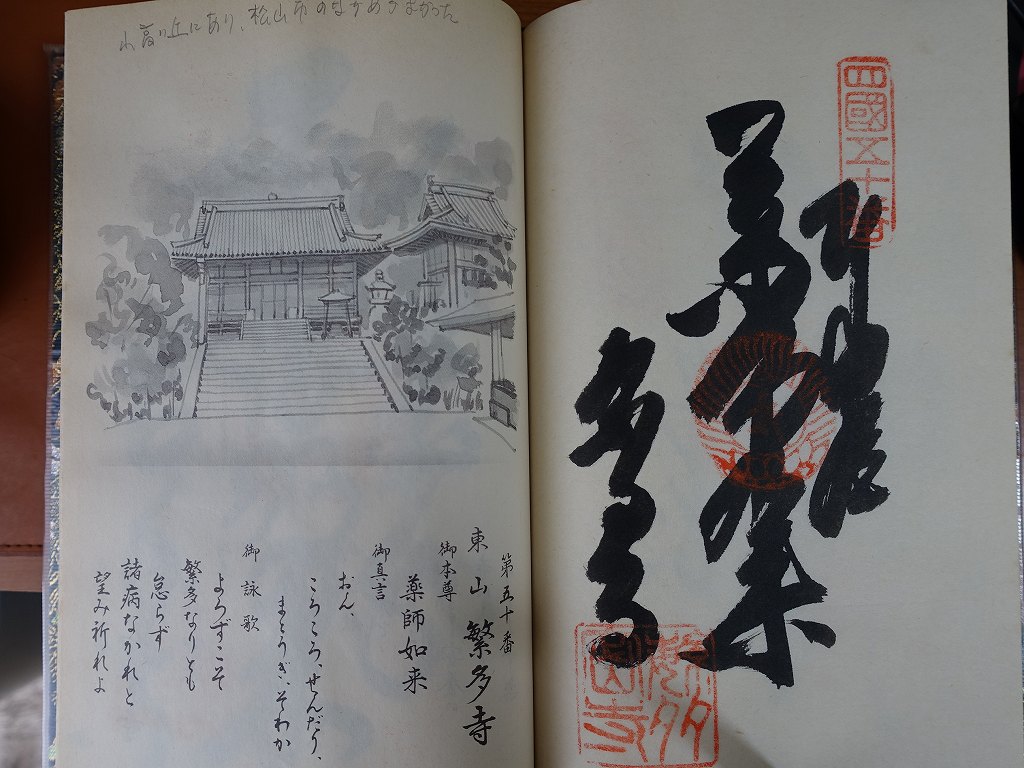 小高い丘にあり、松山市のながめがよかった
四國五十番
第五十番
東山 繁多寺
御本尊
薬師如来
御真言
おん、
ころころ、せんだり、
まとうぎ、そわか
御詠歌
よろずこそ
繁多なりとも
怠らず
諸病なかれと
望み祈れよ